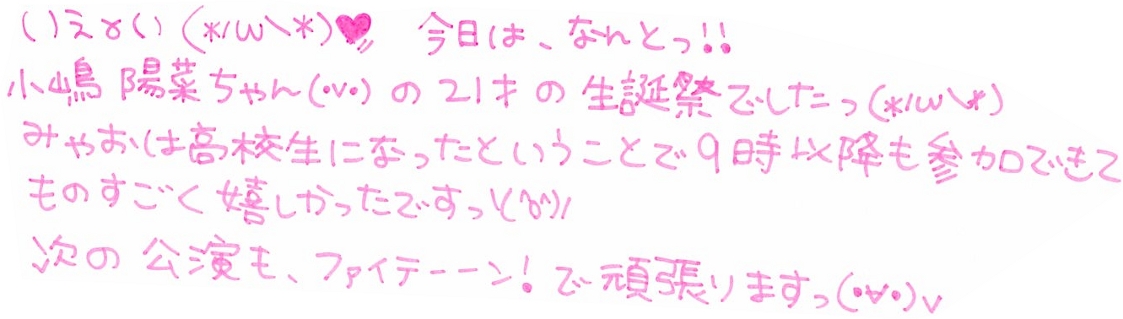 いえい (*/ω\*)♥ 今日は、なんとっ!!
小嶋陽菜ちゃん(・v・)の21才の生誕祭でしたっ(*/ω\*)
みやおは高校生になったということで9時以降も参加できて
ものすごく嬉しかったですっ\(^o^)/
次の公演も、ファイテーーン!で頑張りますっ(・∀・)v